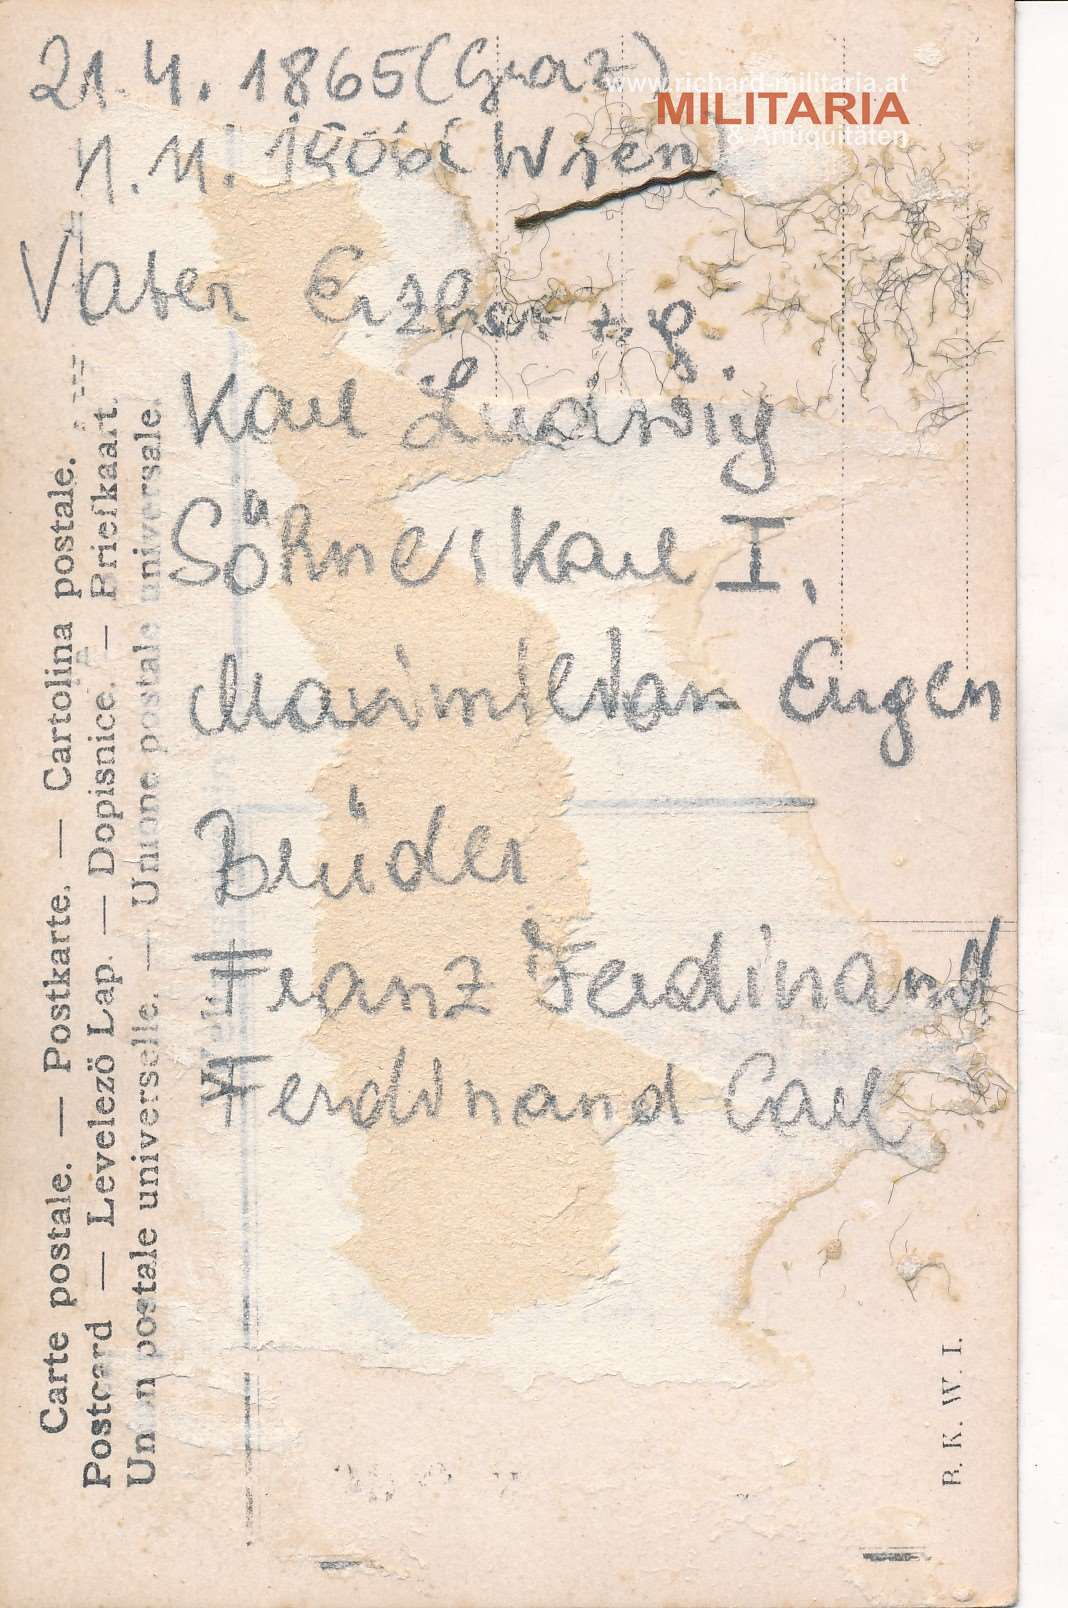 21.4.1865 (Graz)
1.11.1906 (Wien)
Vater Erzherzg.
Karl Ludwig
Söhne: Karl I.
Maximilian Eugen
Brüder
Franz Ferdinand
Ferdinand Carl
Carte postale. — Postkarte. — Cartolina postale.
Postcard — Levelező Lap. — Dopisnice. — Briefkaart.
Union postale universelle. — Unione postale universale.
B. K. W. I.
www.richard-militaria.at
MILITARIA
& Antiquitäten